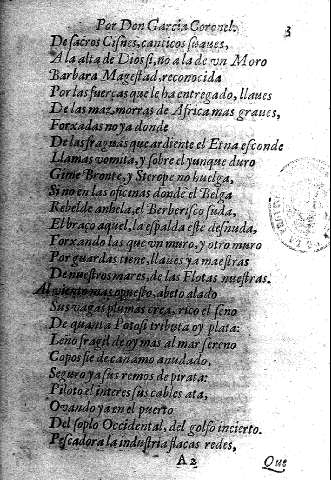 Por Don Garcia Coronel. 3
De sacros Cisnes, canticos suaues,
A la alta de Dios si, no a la de vn Moro
Barbara Magestad, reconocida
Por las fuerças que le ha entregado, llaues
De las maz, morras de Africa mas graues,
Forxadas no ya donde
De las fraguas que ardiente el Etna esconde
Llamas vomita, y sobre el yunque duro
Gime Bronte, y Sterope no huelga,
Si no en las oficinas donde el Belga
Rebelde anhela, el Berberisco suda,
El braço aquel, la espalda este desnuda,
Forxando las que vn muro, y otro muro
Por guardas tiene, llaues ya maestras
De nuestros mares, de las Flotas nuestras.
Al viento mas opuesto, abeto alado
Sus vagas plumas crea, rico el seno
De quanta Potosi tributa oy plata:
Leño fragil de oy mas al mar sereno
Copos fie de cañamo anudado,
Seguro ya sus remos de pirata:
Piloto el interes sus cables ata,
Ouando ya en el puerto
Del soplo Occidental, del golfo incierto.
Pescadora la industria flacas redes,
A2 Que